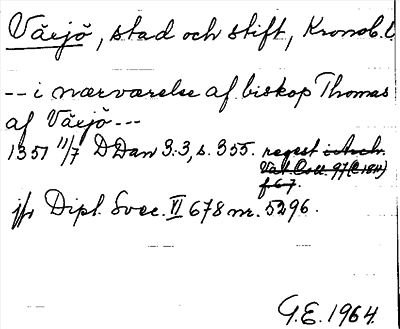 Växjö, stad och stift, Kronob. l
-- i nærværelse af biskop Thomas
af Växjö ---
1351 11/7 DDan 3.3, s. 355. regest
Vat. Coll. 97 (C 1811)
f 67.
jfr Dipl. Svec. VI 678 nr. 5296.
G.E. 1964.